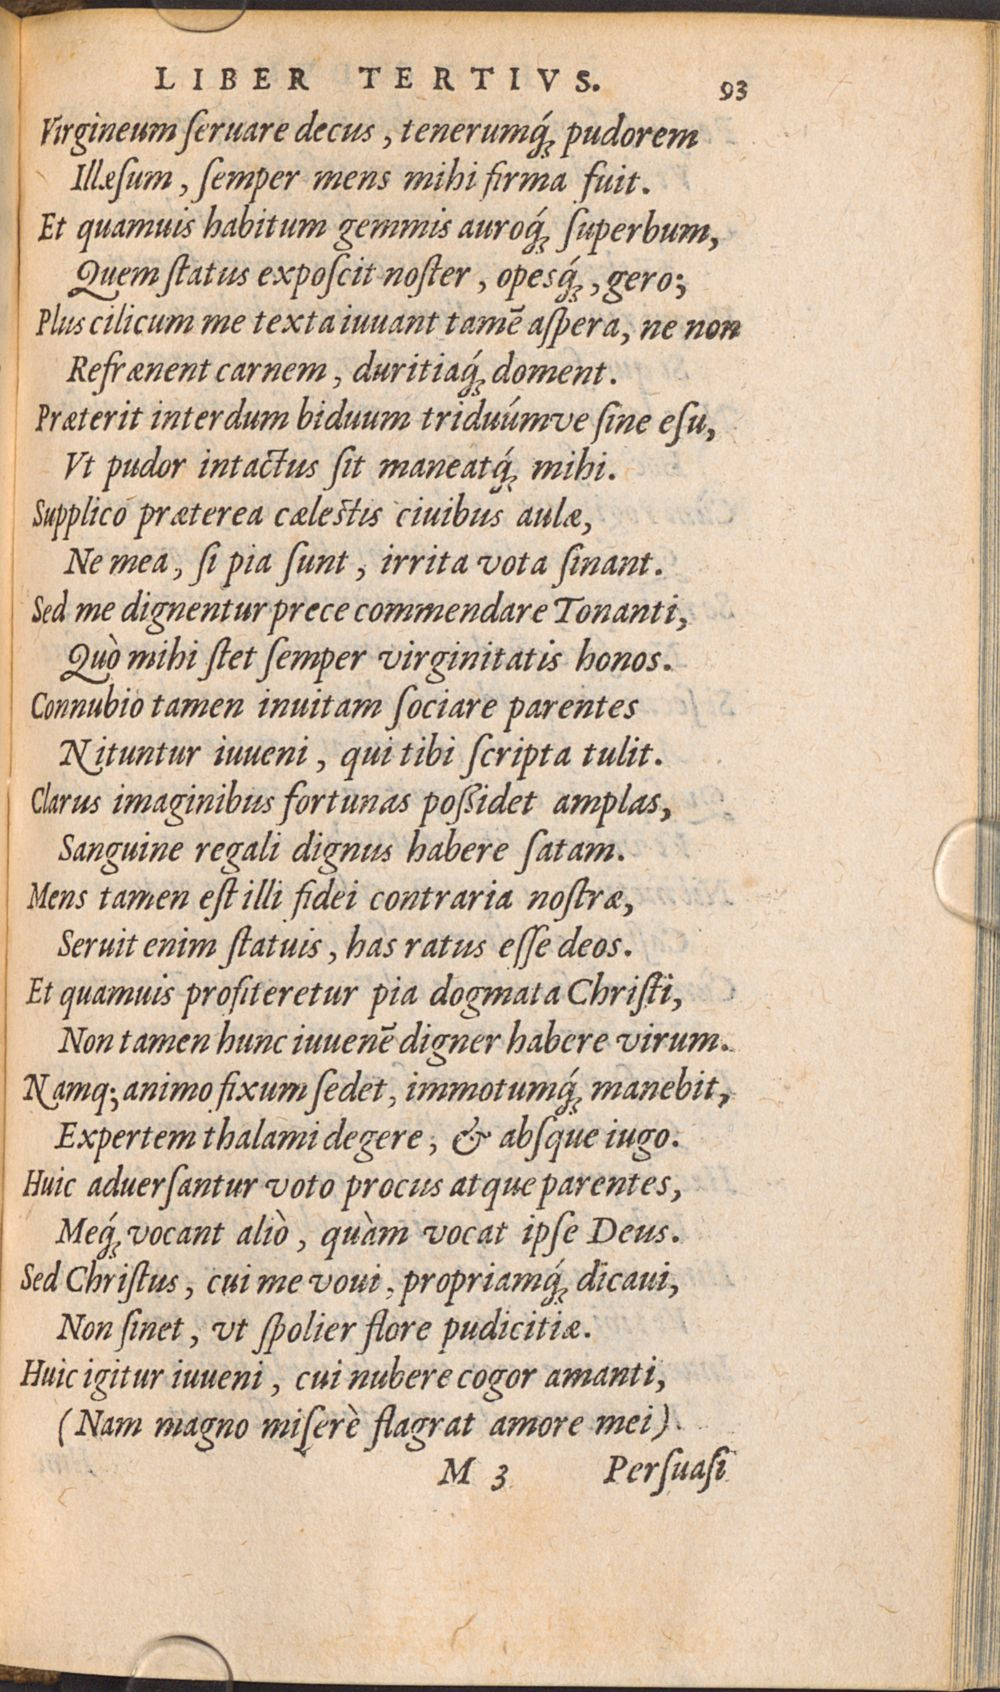 LIBER TERTIVS. 93
Virgineum ſeruare decus, tenerumq́ꝫ pudorem
Illæſum, ſemper mens mihi firma fuit.
Et quamuis habitum gemmis auroq́ꝫ ſuperbum,
Quem ſtatus expoſcit noſter, opesq́ꝫ, gero;
Plus cilicum me texta iuuant tamē aſpera, ne non
Refrænent carnem, duritiaq́ꝫ doment.
Præterit interdum biduum triduúmve ſine eſu,
Vt pudor intactus ſit maneatq́ꝫ mihi.
Supplico præterea cæleſtis ciuibus aulæ,
Ne mea, ſi pia ſunt, irrita vota ſinant.
Sed me dignentur prece commendare Tonanti,
Quò mihi ſtet ſemper virginitatis honos.
Connubio tamen inuitam ſociare parentes
Nituntur iuueni, qui tibi ſcripta tulit.
Clarus imaginibus fortunas poßidet amplas,
Sanguine regali dignus habere ſatam.
Mens tamen eſt illi fidei contraria noſtræ,
Seruit enim ſtatuis, has ratus eſſe deos.
Et quamuis profiteretur pia dogmata Chriſti,
Non tamen hunc iuuenē digner habere virum.
Namq; animo fixum ſedet, immotumq́ꝫ manebit,
Expertem thalami degere, & abſque iugo.
Huic aduerſantur voto procus atque parentes,
Meq́ꝫ vocant aliò, quàm vocat ipſe Deus.
Sed Chriſtus, cui me voui, propriamq́ꝫ dicaui,
Non ſinet, vt ſpolier flore pudicitiæ.
Huic igitur iuueni, cui nubere cogor amanti,
(Nam magno miſerè flagrat amore mei)
M 3 Persuaſi